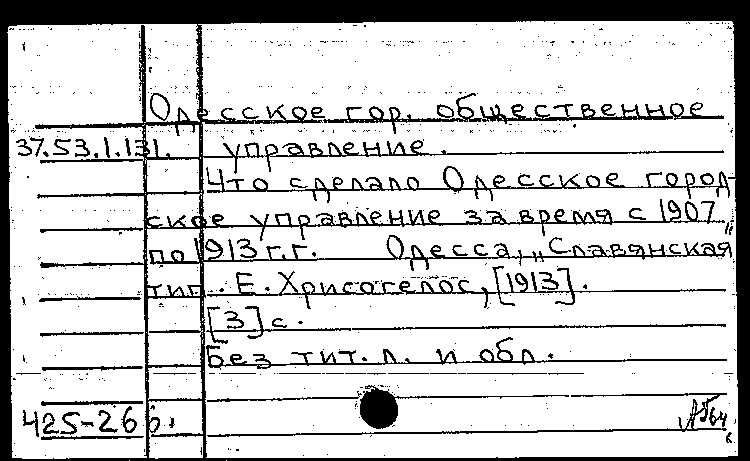 Одесское гор. общественное
37.53.1.131. управление.
Что сделало Одесское город-
ское управление за время с 1907
по 1913 г.г. Одесса, "Славянская"
тип. Е. Хрисогелос, [1913].
[3] с.
Без тит. л. и обл.
425-26 б.